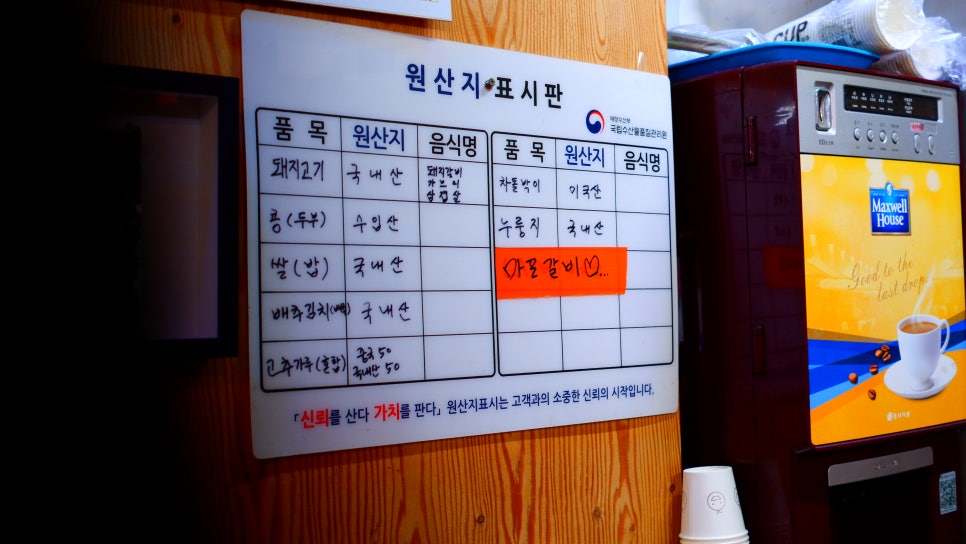 원산지 표시판
해양수산부
국립수산물품질관리원
품 목 원산지 음식명
돼지고기 국내산 돼지갈비
가브리
삼겹살
콩(두부) 수입산
쌀(밥) 국내산
배추김치(배추) 국내산
고추가루(혼합) 중국 50
국내산 50
품 목 원산지 음식명
차돌박이 미국산
누룽지 국내산
♡마포갈비♡...
「신뢰를 산다 가치를 판다」 원산지표시는 고객과의 소중한 신뢰의 시작입니다.
CUP
Maxwell
House
Good to the
last drop.
동서식품